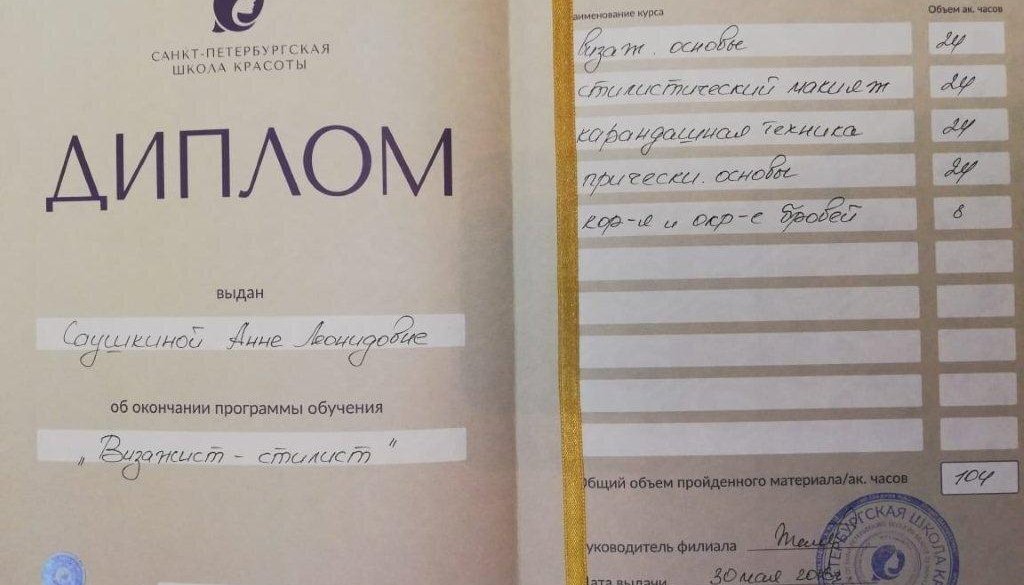 САНКТ-ПЕТЕРБУРГСКАЯ
ШКОЛА КРАСОТЫ
ДИПЛОМ
выдан
Саушкиной Анне Леонидовне
об окончании программы обучения
„Визажист - стилист"
наименование курса Объем ак. часов
Визаж. основы 24
стилистический макияж 24
карандашная техника 24
прически. основы 24
кор-я и окр-е бровей 8
Общий объем пройденного материала/ак. часов 104
руководитель филиала
Дата выдачи 30 мая
ПЕТЕРБУРГСКАЯ ШКОЛА